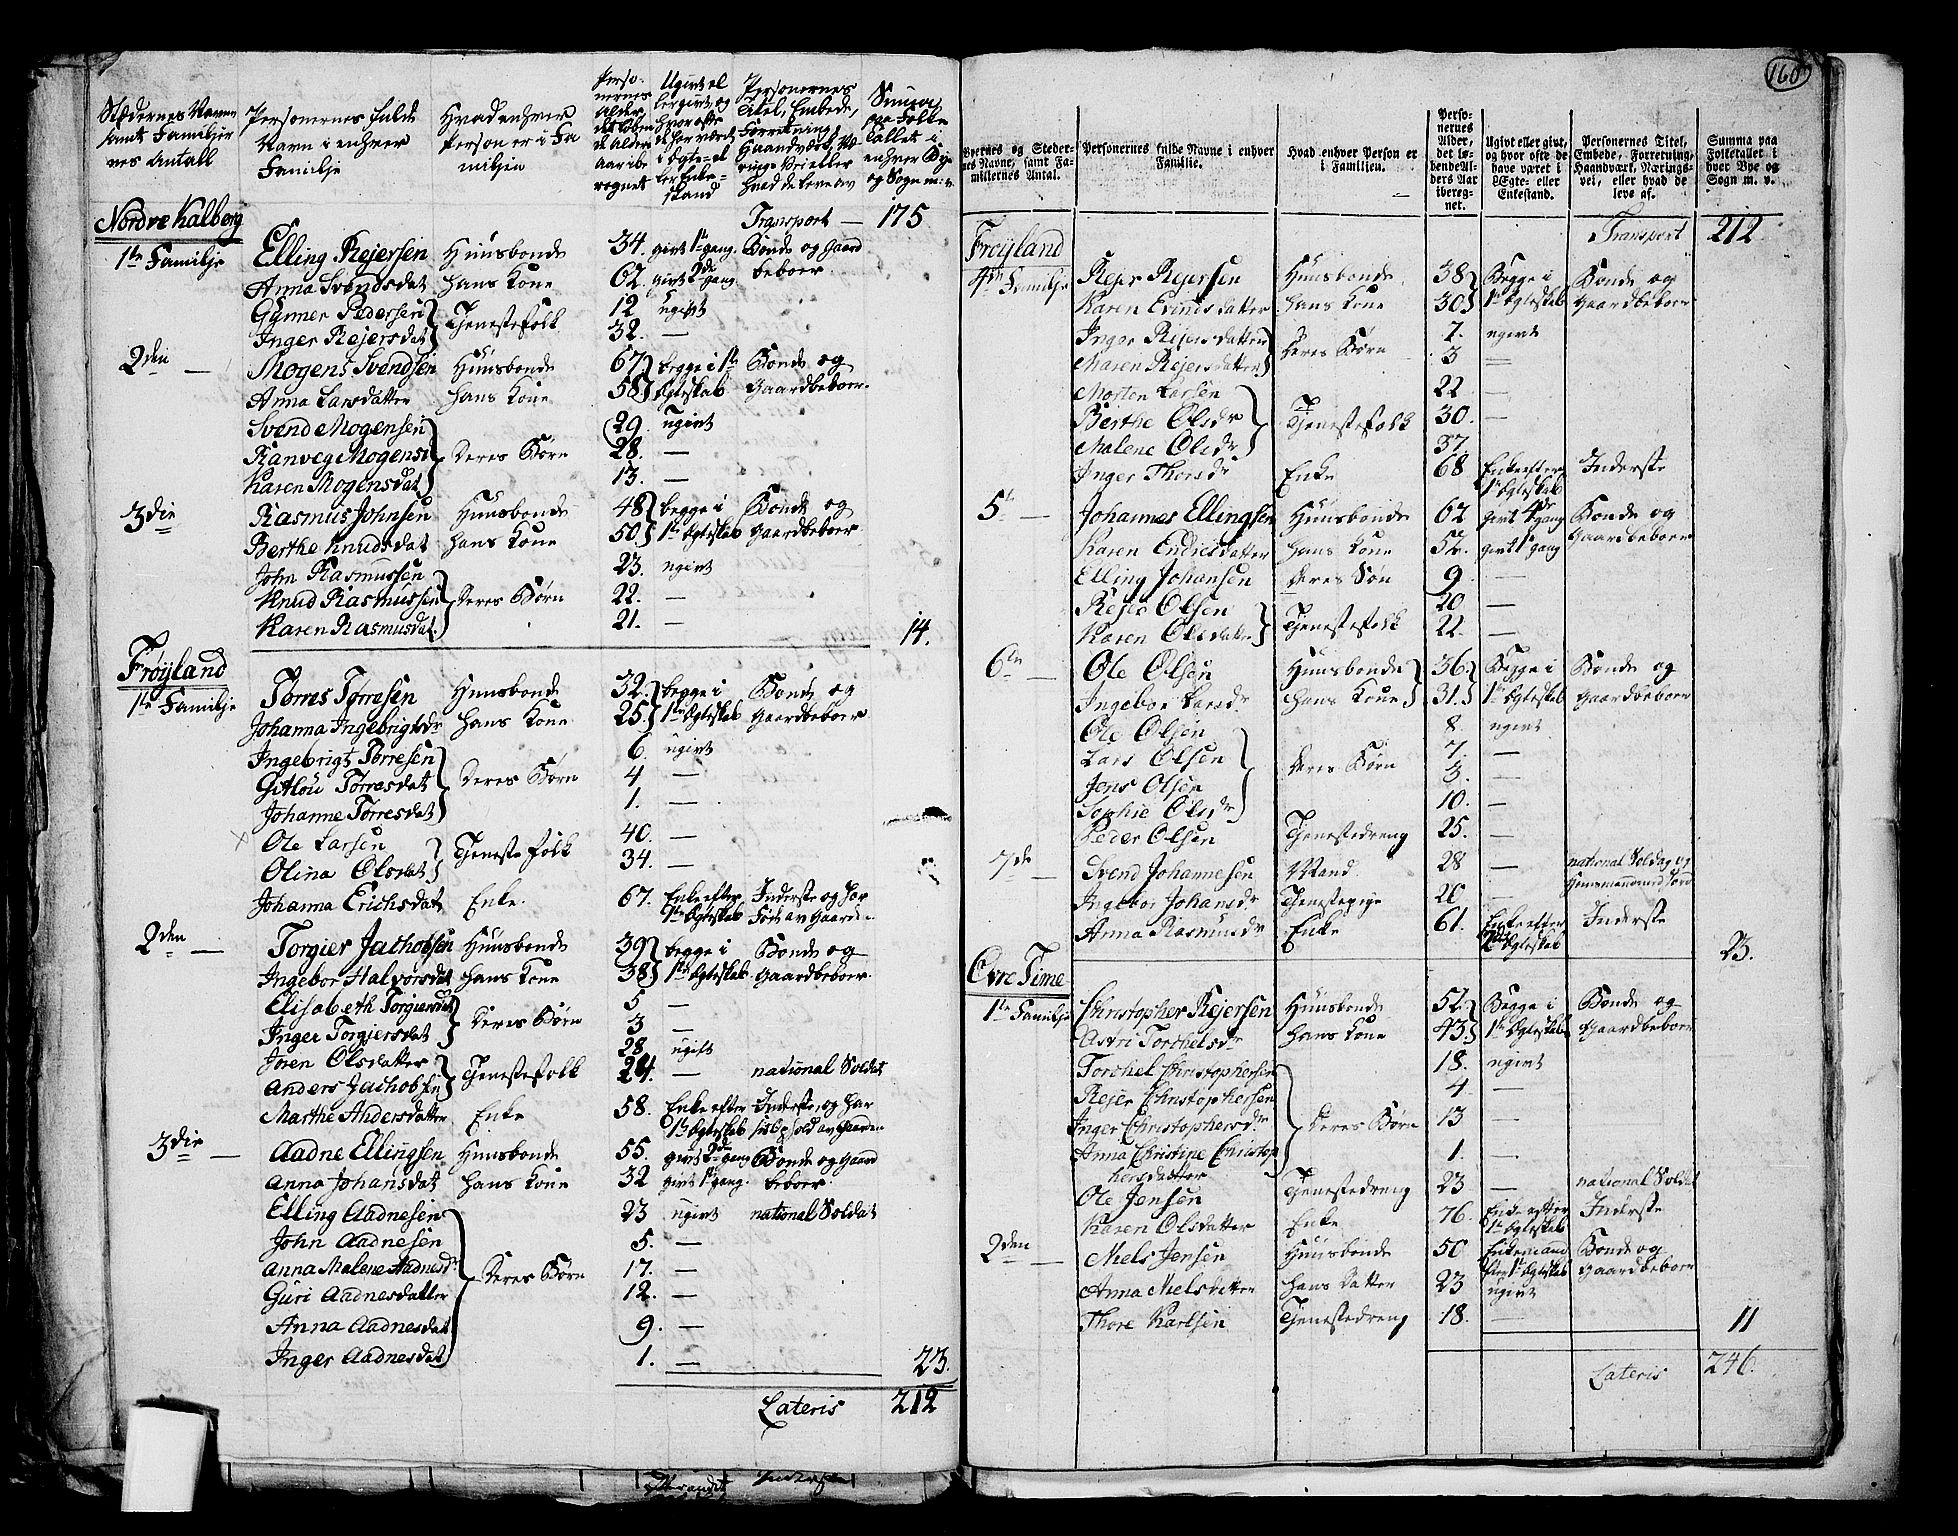 Stædernes Navne samt Familjernes Antall
Personernes fulde Navn i enhver Familje
Hvad enhver Person er i Familjen
Personernes Alder, det løbende Alders Aar iberegnet
Ugivt eller givt, og hvor ofte de har været i Ægte- eller Enkestand
Personernes Titel, Embede, Forretning, Haandværk, Nærings Vei eller hvad de leve av
Summa paa Folke Tallet i enhver Bye og Sogn m: v:
Nordre Kalberg Transport — 175
1te Familje Elling Rejersen Huusbonde 34. givt 1te gang Bonde og Gaardbeboer
Anna Svendsdat hans Kone 62. givt 2de gang
Gunner Pedersen Tjenestefolk 12 ugivt
Inger Rejersdat 32. —
2den — Mogens Svendsen Huusbonde 67 begge i 1te Ægteskab Bonde og Gaardbeboer.
Anna Larsdatter hans Kone 58
Svend Mogensen 29. ugivt
Ranveg Mogensd Deres Børn 28. —
Karen Mogensdat 13. —
3die Rasmus Johnsen Huusbonde 48 begge i 1te Ægteskab Bonde og Gaardbeboer
Berthe Knudsdat hans Kone 50
John Rasmussen 23. ugivt
Knud Rasmussen Deres Børn 22. —
Karen Rasmusdat. 21. — 14.
Frøyland
1te Familje Tørres Tørresen Huusbonde 32. begge i 1te Ægteskab Bonde og Gaardbeboer
Johanna Ingebrigtsdr hans Kone 25.
Ingebrigt Tørresen 6. ugivt
Gitlou Tørresdat Deres Børn 4 —
Johanne Tørresdat 1. —
Ole Larsen Tjeneste folk 40. —
Olina Olsdat 34. —
Johanna Erichsdat Enke. 67. Enke efter 1te Ægteskab Inderste og har Føde av Gaarden
2den — Torgier Jachobsen Huusbonde 39 begge i 1te Ægteskab Bonde og Gaardbeboer.
Ingebor Halvorsdat hans Kone 38
Elisabeth Torgiersdat Deres Børn 5 —
Inger Torgiersdat 3 —
Joren Olsdatter Tjenestefolk 28 ugift
Anders Jachobsen 24. — national Soldat
Marthe Andersdatter Enke 58. Enke efter 1te Ægteskab Inderste, og har sit Ophold av Gaarden
3die — Aadne Ellingsen Huusbonde 55. givt 2de gang Bonde og Gaardbeboer.
Anna Johansdat hans Kone 32 givt 1te gang.
Elling Aadnesen 23 ugivt national Soldat
John Aadnesen 5. —
Anna Malene Aadnesdr Deres Børn 17. —
Guri Aadnesdatter 12. —
Anna Aadnesdat 9. —
Inger Aadnesdat 1. — 23.
Lateris 212
160
Byernes og Stedernes Navne, samt Familiernes Antal.
Personernes fulde Navne i enhver Familie.
Hvad enhver Person er i Familien.
Personernes Alder, det løbende Alders Aar iberegnet.
Ugivt eller givt, og hvor ofte de have været i Ægte- eller Enkestand.
Personernes Titel, Embede, Forretning, Haandværk, Næringsvei, eller hvad de leve af.
Summa paa Folketallet i hver Bye og Sogn m. v.
Frøyland Transport 212
4de Familje Rejer Rejersen Huusbonde 38 Begge i 1te Ægteskab Bonde og Gaardbeboer
Karen Evindsdatter hans Kone 30
Inger Rejersdatter Deres Børn 7. ugivt
Maren Rejersdatter 3 —
Morten Larsen 22 —
Berthe Olsdr Tjenestefolk 30. —
Malene Olsdr 37. —
Inger Thorsdr Enke 68 Enke efter 1te Ægteskab Inderste
5te — Johannes Ellingsen Huusbonde 62 givt 4de gang Bonde og Gaardbeboer
Karen Endresdatter hans Kone 52. givt 1te gang
Elling Johansen Deres Søn 9. —
Rejer Olsen Tjenestefolk 20 —
Karen Olsdatter 22. —
6te — Ole Olsen Huusbonde 36. Begge i 1te Ægteskab Bonde og Gaardbeboer
Ingebor Larsdr hans Kone 31.
Ole Olsen 8. ugivt
Lars Olsen Deres Børn 7. —
Jens Olsen 3. —
Sophie Olsdr 10. —
Peder Olsen Tjenestedreng 25. —
7de — Svend Johannesen Mand 28 — national Soldat og
Ingebor Johansdr Tjenestepige 20 —
Anna Rasmusdr Enke 61. Enke efter Ægteskab Inderste
23.
Øvre Time
1te Familje Christopher Rejersen Huusbonde 52. Begge i 1te Ægteskab Bonde og Gaardbeboer
Astri Torchelsdr hans Kone 43
Torchel Christophersen 18. ugivt
Rejer Christophersen 4 —
Inger Christophersdr Deres Børn 13 —
Anna Christine Christophersdatter 1. —
Ole Jensen Tjenestedreng 23 — national Soldat
Karen Olsdatter Enke 76. Enke efter 1te Ægteskab Inderste
2den — Niels Jensen Huusbonde 50 Enkemand efter 1te Ægteskab Bonde og Gaardbeboer
Anna Nielsdatter hans Datter 23 ugivt
Thore Karlsen Tjenestedreng 18. — 11
Lateris 246.